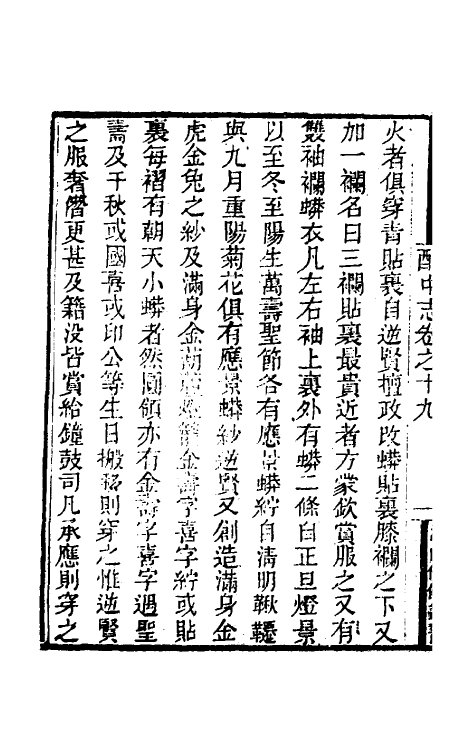 火者俱穿青貼裏自逆賢擅政改蟒貼裏膝襴之下又
加一襴名曰三襴貼裏最貴近者方蒙欽賞服之又有
雙袖襴蟒衣凡左右袖上裏外有蟒二條自正旦燈景
以至冬至陽生萬壽聖節各有應景蟒紵自清明鞦韆
與九月重陽菊花俱有應景蟒紗逆賢又創造滿身金
虎金兔之紗及滿身金葫蘆燈籠金壽字喜字紵或貼
裏每褶有朝天小蟒者然圓領亦有金壽字喜字遇聖
壽及千秋或國喜或印公等生日搬移則穿之惟逆賢
之服奢僭更甚及籍没皆賞給鐘鼓司凡承應則穿之
酌中志卷之十九